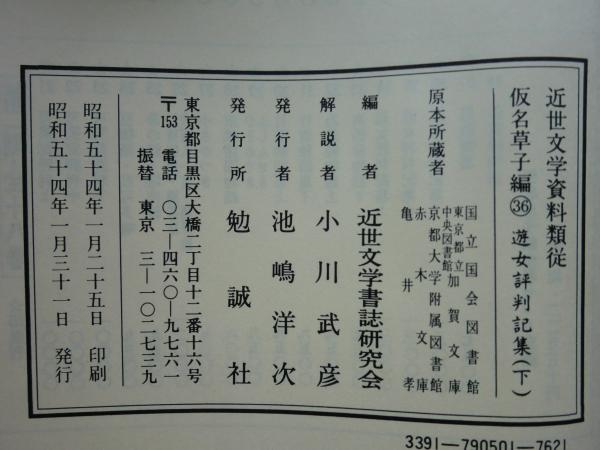 近世文学資料類従
仮名草子編㊱ 遊女評判記集(下)
原本所蔵者
国立国会図書館
東京都立中央図書館 加賀文庫
京都大学附属図書館
赤木文庫
亀井孝
編者 近世文学書誌研究会
解説者 小川武彦
発行者 池嶋洋次
発行所 勉誠社
東京都目黒区大橋二丁目十二番十六号
〒153 電話 〇三―四六〇―九七六一
振替 東京 三―一〇二七三九
昭和五十四年一月二十五日 印刷
昭和五十四年一月三十一日 発行
3391―790501―7621